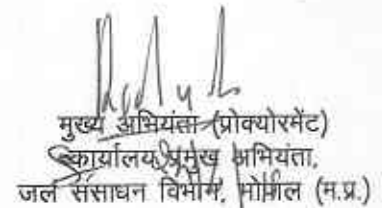 मुख्य अभियंता (प्रोक्योरमेंट)
कार्यालय प्रमुख अभियंता,
जल संसाधन विभाग, भोपाल (म.प्र.)